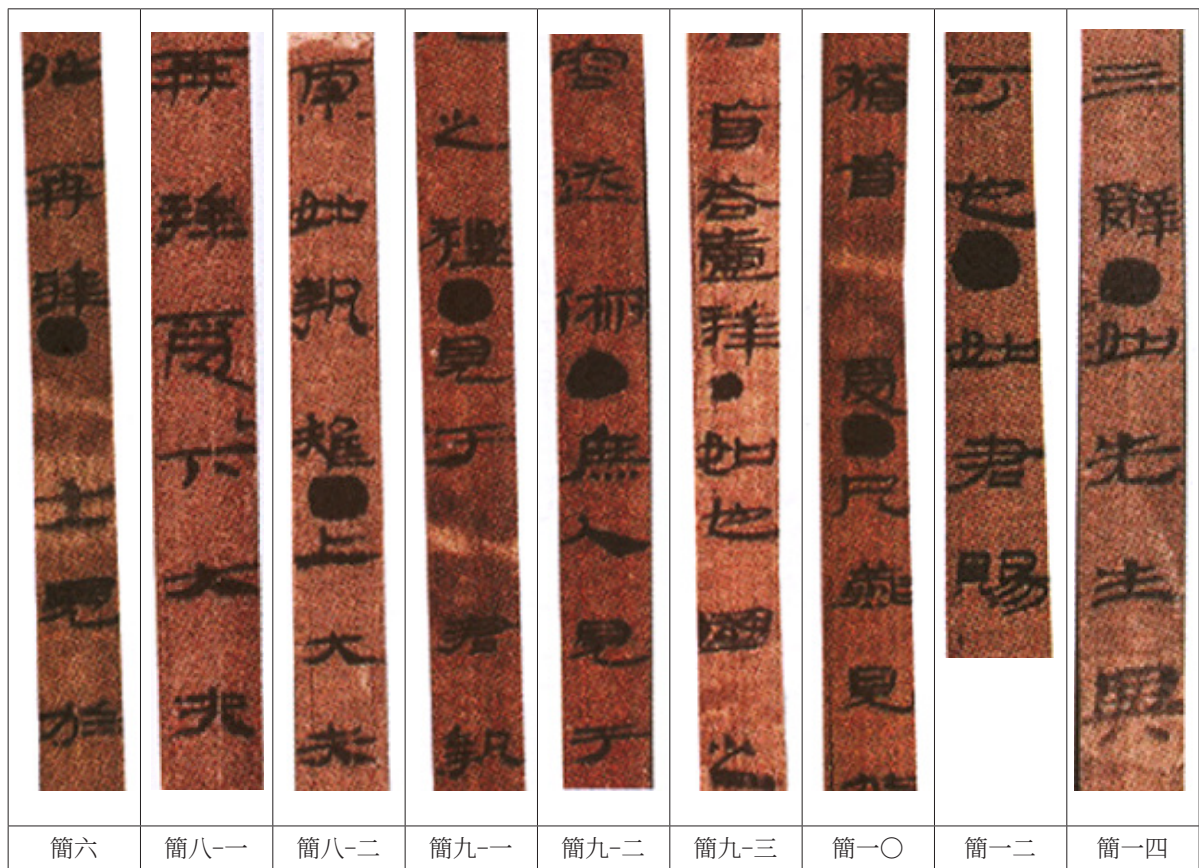 再拜●士見於
再拜受下大夫
如執雉●上大夫
之禮●見于君執
容術●庶人見于
首合壹拜●如也國之
稽首受●凡燕見於
可也●如君賜
三辭●如先生異
簡六
簡八-一
簡八-二
簡九-一
簡九-二
簡九-三
簡一〇
簡一二
簡一四